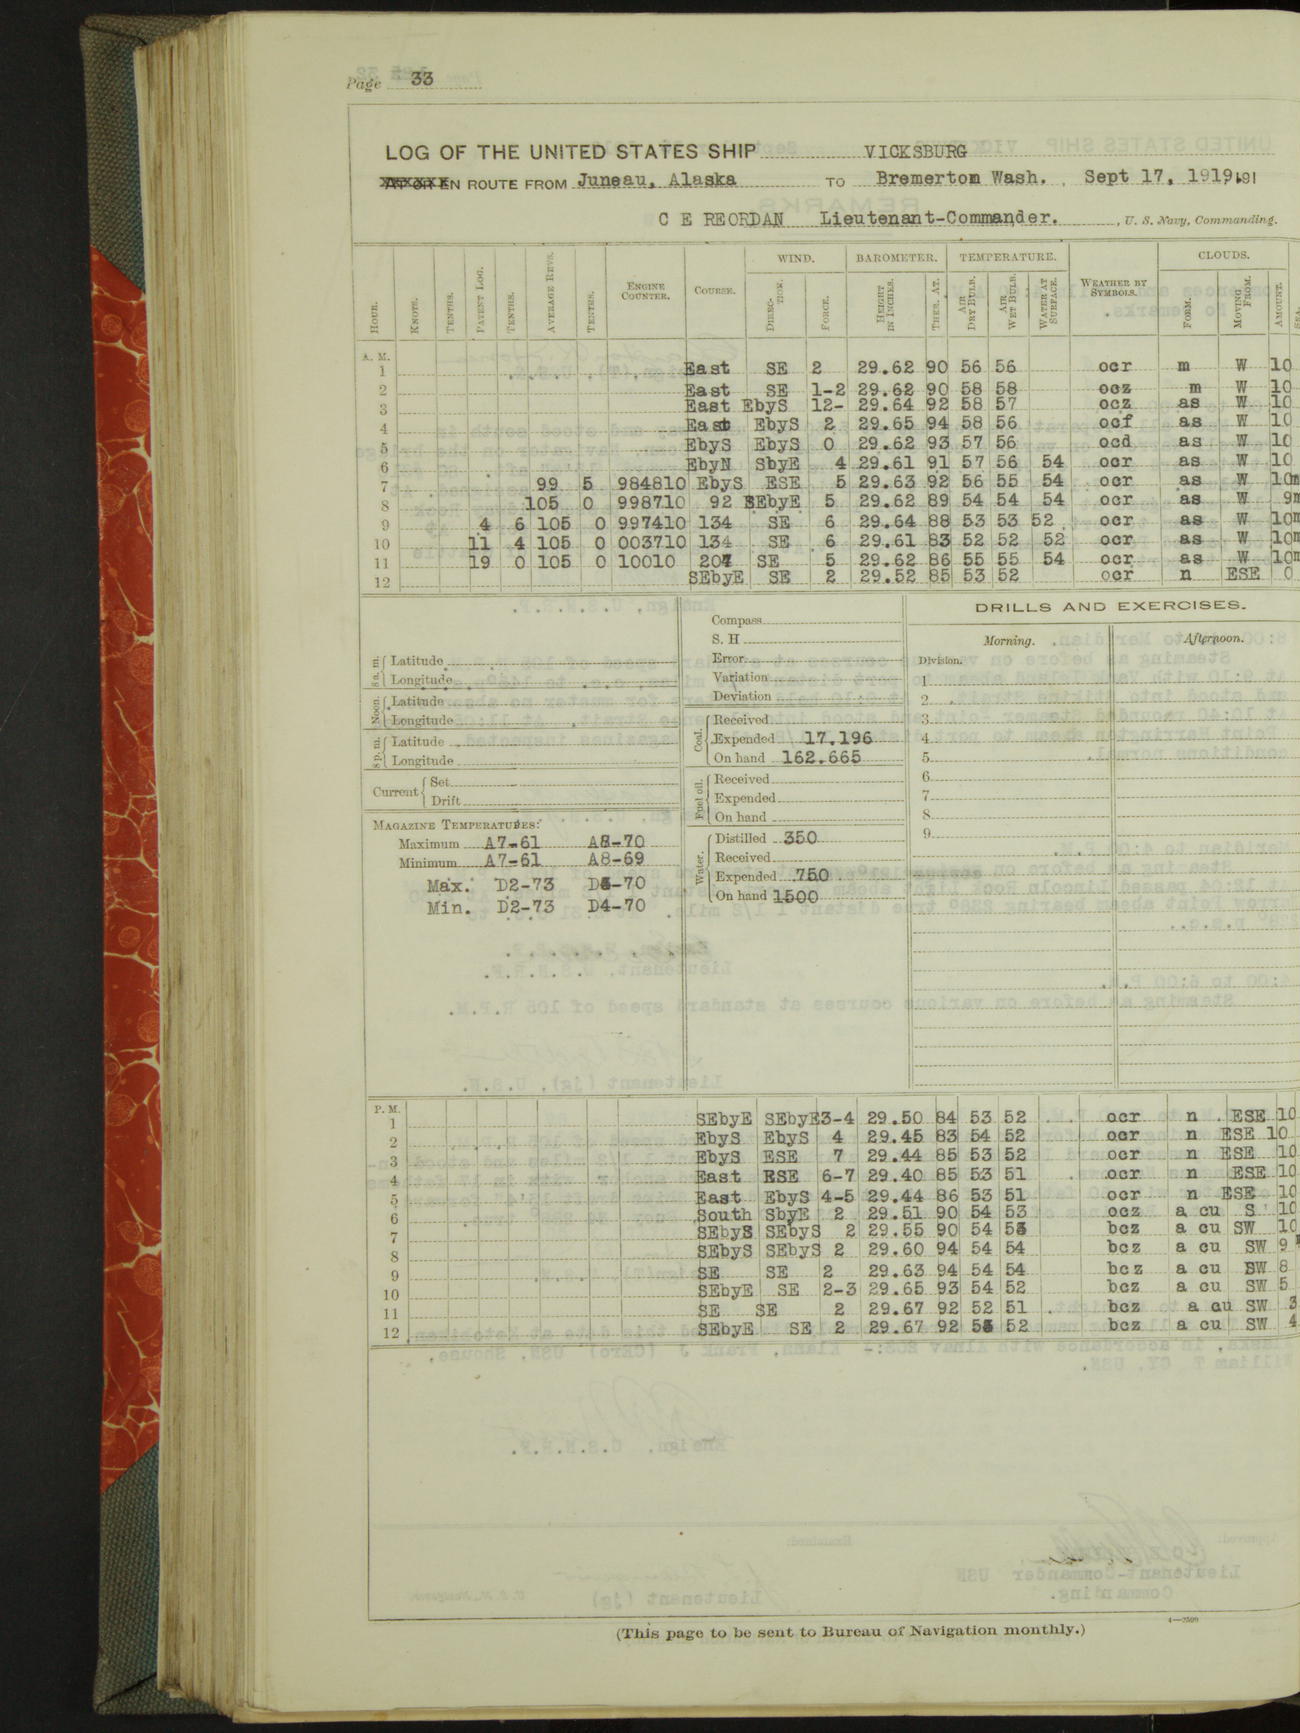 Page 33
LOG OF THE UNITED STATES SHIP VICKSBURG
EN ROUTE FROM Juneau, Alaska TO Bremerton Wash. Sept 17, 1919
C E REORDAN Lieutenant-Commander. , U. S. Navy, Commanding.
WIND. BAROMETER. TEMPERATURE. CLOUDS.
HOUR. KNOTS. TENTHS. PATENT LOG. TENTHS. AVERAGE REVS. TENTHS. ENGINE COUNTER. COURSE. DIRECTION. FORCE. HEIGHT IN INCHES. THER. AT. AIR DRY BULB. AIR WET BULB. WATER AT SURFACE. WEATHER BY SYMBOLS. FORM. MOVING FROM. AMOUNT.
A. M.
1 East SE 2 29.62 90 56 56 ocr m W 10
2 East SE 1-2 29.62 90 58 58 ocz m W 10
3 East EbyS 12- 29.64 92 58 57 ocz as W 10
4 East EbyS 2 29.65 94 58 56 ocf as W 10
5 EbyS EbyS 0 29.62 93 57 56 ocd as W 10
6 EbyN SbyE 4 29.61 91 57 56 54 ocr as W 10
7 99 5 984810 EbyS ESE 5 29.63 92 56 55 54 ocr as W 10m
8 105 0 998710 92 SEbyE 5 29.62 89 54 54 54 ocr as W 9m
9 4 6 105 0 997410 134 SE 6 29.64 88 53 53 52 ocr as W 10m
10 11 4 105 0 003710 134 SE 6 29.61 83 52 52 52 ocr as W 10m
11 19 0 105 0 10010 207 SE 5 29.62 86 55 55 54 ocr as W 10m
12 SEbyE SE 2 29.52 85 53 52 ocr n ESE 0
8 a. m. Latitude
Longitude
Noon. Latitude
Longitude
8 p. m. Latitude
Longitude
Current Set
Drift
MAGAZINE TEMPERATURES:
Maximum A7-61 A8-70
Minimum A7-61 A8-69
Max. D2-73 -70
Min. D2-73 D4-70
Compass
S. H
Error
Variation
Deviation
Coal. Received
Expended 17.196
On hand 162.665
Fuel oil. Received
Expended
On hand
Water. Distilled 350
Received
Expended 750
On hand 1500
DRILLS AND EXERCISES.
Morning. Afternoon.
Division.
1
2
3
4
5
6
7
8
9
P. M.
1 SEbyE SEbyE 3-4 29.50 84 53 52 ocr n ESE 10
2 EbyS EbyS 4 29.45 83 54 52 ocr n ESE 10
3 EbyS ESE 7 29.44 85 53 52 ocr n ESE 10
4 East ESE 6-7 29.40 85 53 51 ocr n ESE 10
5 East EbyS 4-5 29.44 86 53 51 ocr n ESE 10
6 South SbyE 2 29.51 90 54 53 ocz a cu S 10
7 SEbyS SEbyS 2 29.55 90 54 bcz a cu SW 10
8 SEbyS SEbyS 2 29.60 94 54 54 bcz a cu SW 9
9 SE SE 2 29.63 94 54 54 bcz a cu SW 8
10 SEbyE SE 2-3 29.65 93 54 52 bcz a cu SW 5
11 SE SE 2 29.67 92 52 51 bcz a cu SW 3
12 SEbyE SE 2 29.67 92 52 bcz a cu SW 4
4—2509
(This page to be sent to Bureau of Navigation monthly.)